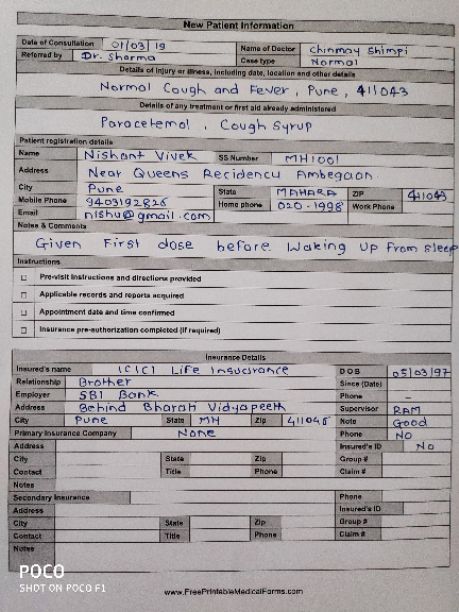 New Patient Information
Date of Consultation 01/03/19 Name of Doctor Chinmay Shimpi
Referred by Dr. Sharma Case type Normal
Details of injury or illness, including date, location and other details
Normal Cough and Fever, Pune, 411043
Details of any treatment or first aid already administered
Paracetemol, Cough Syrup
Patient registration details
Name Nishant Vivek SS Number MH1001
Address Near Queens Recidency Ambegaon
City Pune State MAHARA ZIP 411043
Mobile Phone 9403192826 Home phone 020-1998 Work Phone
Email nishu@gmail.com
Notes & Comments
Given First dose before Waking Up from Sleep
Instructions
Pre-visit instructions and directions provided
Applicable records and reports acquired
Appointment date and time confirmed
Insurance pre-authorization completed (if required)
Insurance Details
Insured's name ICICI Life Insucirance DOB 05/03/97
Relationship Brother Since (Date)
Employer SBI Bank Phone -
Address Behind Bharati Vidyapeeth Supervisor RAM
City Pune State MH Zip 411046 Note Good
Primary Insurance Company None Phone NO
Address Insured's ID No
City State Zip Group #
Contact Title Phone Claim #
Notes
Secondary Insurance Phone
Address Insured's ID
City State Zip Group #
Contact Title Phone Claim #
Notes
POCO
SHOT ON POCO F1
www.FreePrintableMedicalForms.com